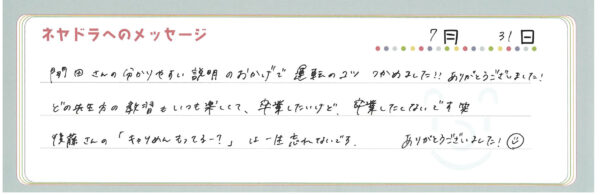 ネヤドラへのメッセージ 7月 31日
門田さんの分かりやすい説明のおかげで運転のコツつかめました!! ありがとうございました!
どの先生方の教習もいつも楽しくて、卒業したいけど、卒業したくないです笑
後藤さんの「きゃりめんもってるー?」は一生忘れないです. ありがとうございました!